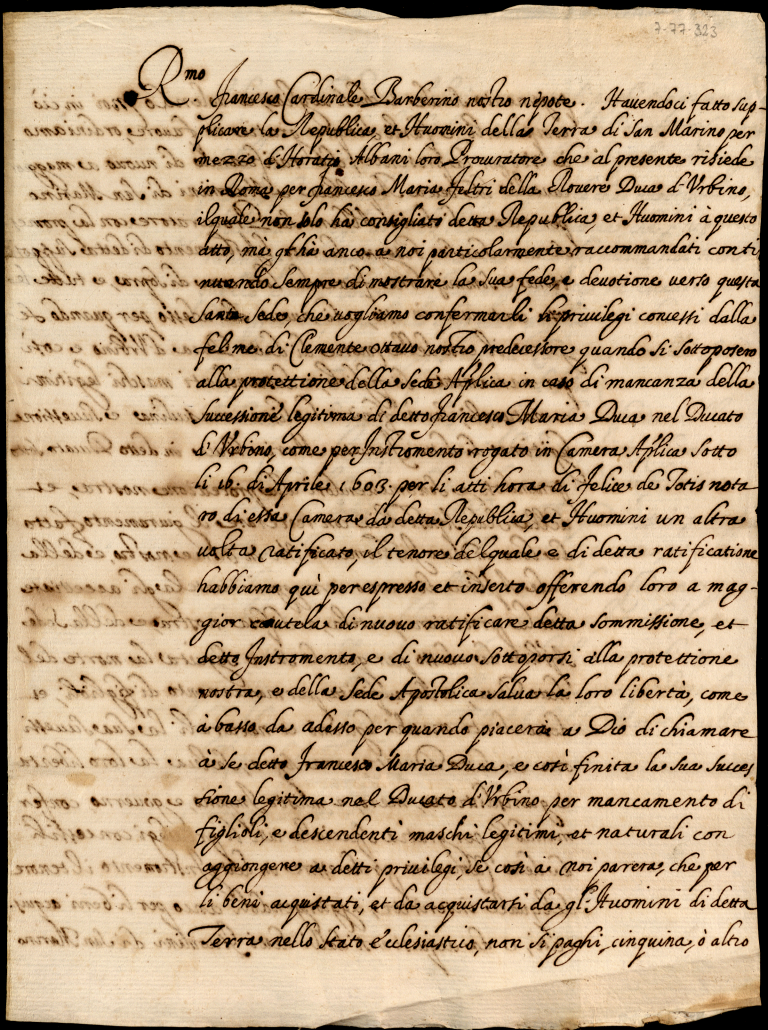 7-77-323
Rmo
Francesco Cardinale Barberino nostro nepote. Havendoci fatto sup-
plicare la Republica, et Huomini della Terra di San Marino per
mezzo d'Horatio Albani loro Procuratore che al presente risiede
in Roma per francesco Maria feltri della Rovere Duca d'Vrbino,
ilquale non solo ha consigliato detta Republica, et Huomini à questo
atto, ma gl'hà anco a noi particolarmente raccommandati conti
nuando sempre di mostrare la sua fede, e devotione verso questa
Santa Sede, che vogliamo confermarli li privilegi concessi dalla
fel: me: di Clemente ottavo nostro predecessore quando si sottoposero
alla protettione della Sede Aplica in caso di mancanza della
successione legitima di detto francesco Maria Duca nel Ducato
d'Vrbono, come per Instromento rogato in Camera Aplica sotto
li 16. di Aprile 1603. per li atti hora di felice de Totis nota
ro di essa Camera da detta Republica, et Huomini un altra
volta ratificato, il tenore del quale e di detta ratificatione
habbiamo quì per espresso et inserto offerendo loro a mag-
gior cautela di nuovo ratificare detta sommissione, et
detto Instromento, e di nuovo sottoporsi alla protettione
nostra, e della Sede Apostolica salva la loro libertà, come
à basso da adesso per quando piacerà a Dio di chiamare
à se detto Francesco Maria Duca, e così finita la sua succes
sione legitima nel Ducato d'Vrbino per mancamento di
figlioli, e descendenti maschi legitimi, et naturali con
aggiongere a detti privilegi, se così à noi parera, che per
li beni acquistati, et da acquistarsi da gl'Huomini di detta
Terra nello stato ecclesiastico, non si paghi, cinquina, ò altro